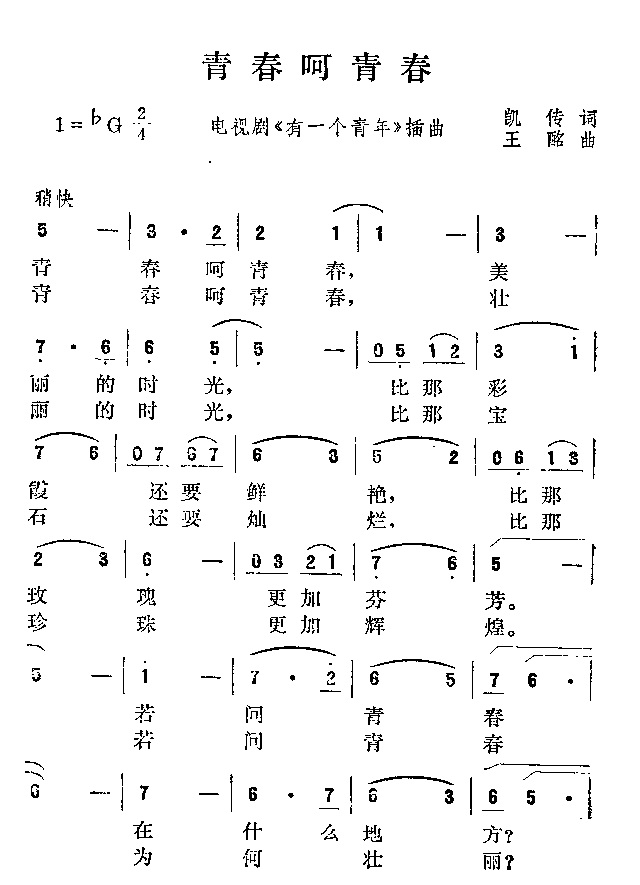 青春呵青春
1=♭G 2/4 电视剧《有一个青年》插曲 凯传词
王酩曲
稍快
5 — | 3 · 2 | 2 1 | 1 — | 3 — |
青 春 呵 青 春, 美
青 春 呵 青 春, 壮
7 · 6 | 6 5 | 5 — | 0 5 1 2 | 3 1 |
丽 的 时 光, 比 那 彩
丽 的 时 光, 比 那 宝
7 6 | 0 7 6 7 | 6 3 | 5 2 | 0 6 1 3 |
霞 还 要 鲜 艳, 比 那
石 还 要 灿 烂, 比 那
2 3 | 6 — | 0 3 2 1 | 7 6 | 5 — |
玫 瑰 更 加 芬 芳。
珍 珠 更 加 辉 煌。
5 — | 1 — | 7 · 2 | 6 5 | 7 6 · |
若 问 青 春
若 问 青 春
6 — | 7 — | 6 · 7 | 6 3 | 6 5 · |
在 什 么 地 方?
为 何 壮 丽?